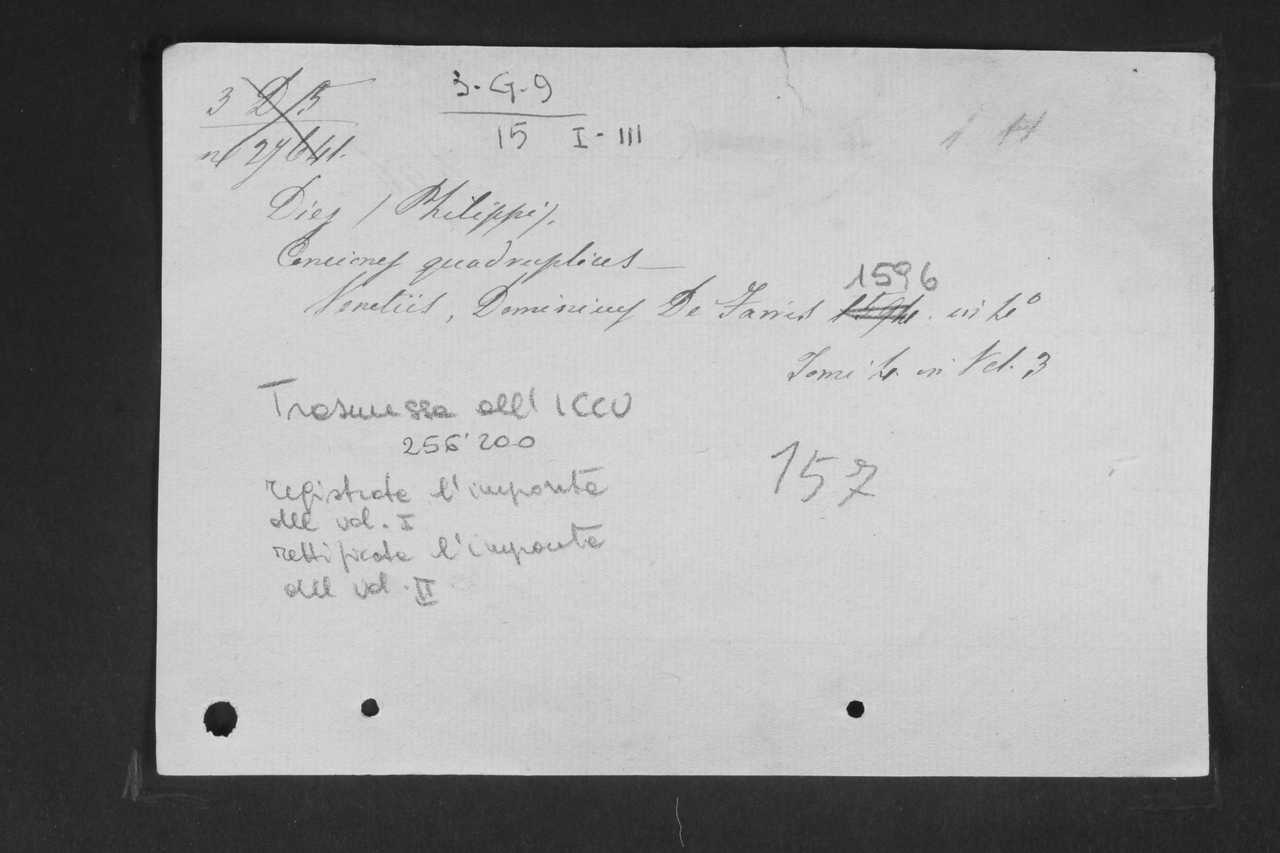 3 D 5
3-G-9
15 I-III
Diez (Philippi),
Conciones quadruplices
Venetiis, Dominicus De Farris 1596 in 4°
Tomi 4. in Vol. 3
Trasmessa all' ICCU
256'200
157
registrata l'impronta
del vol. I
rettificata l'impronta
del vol. II